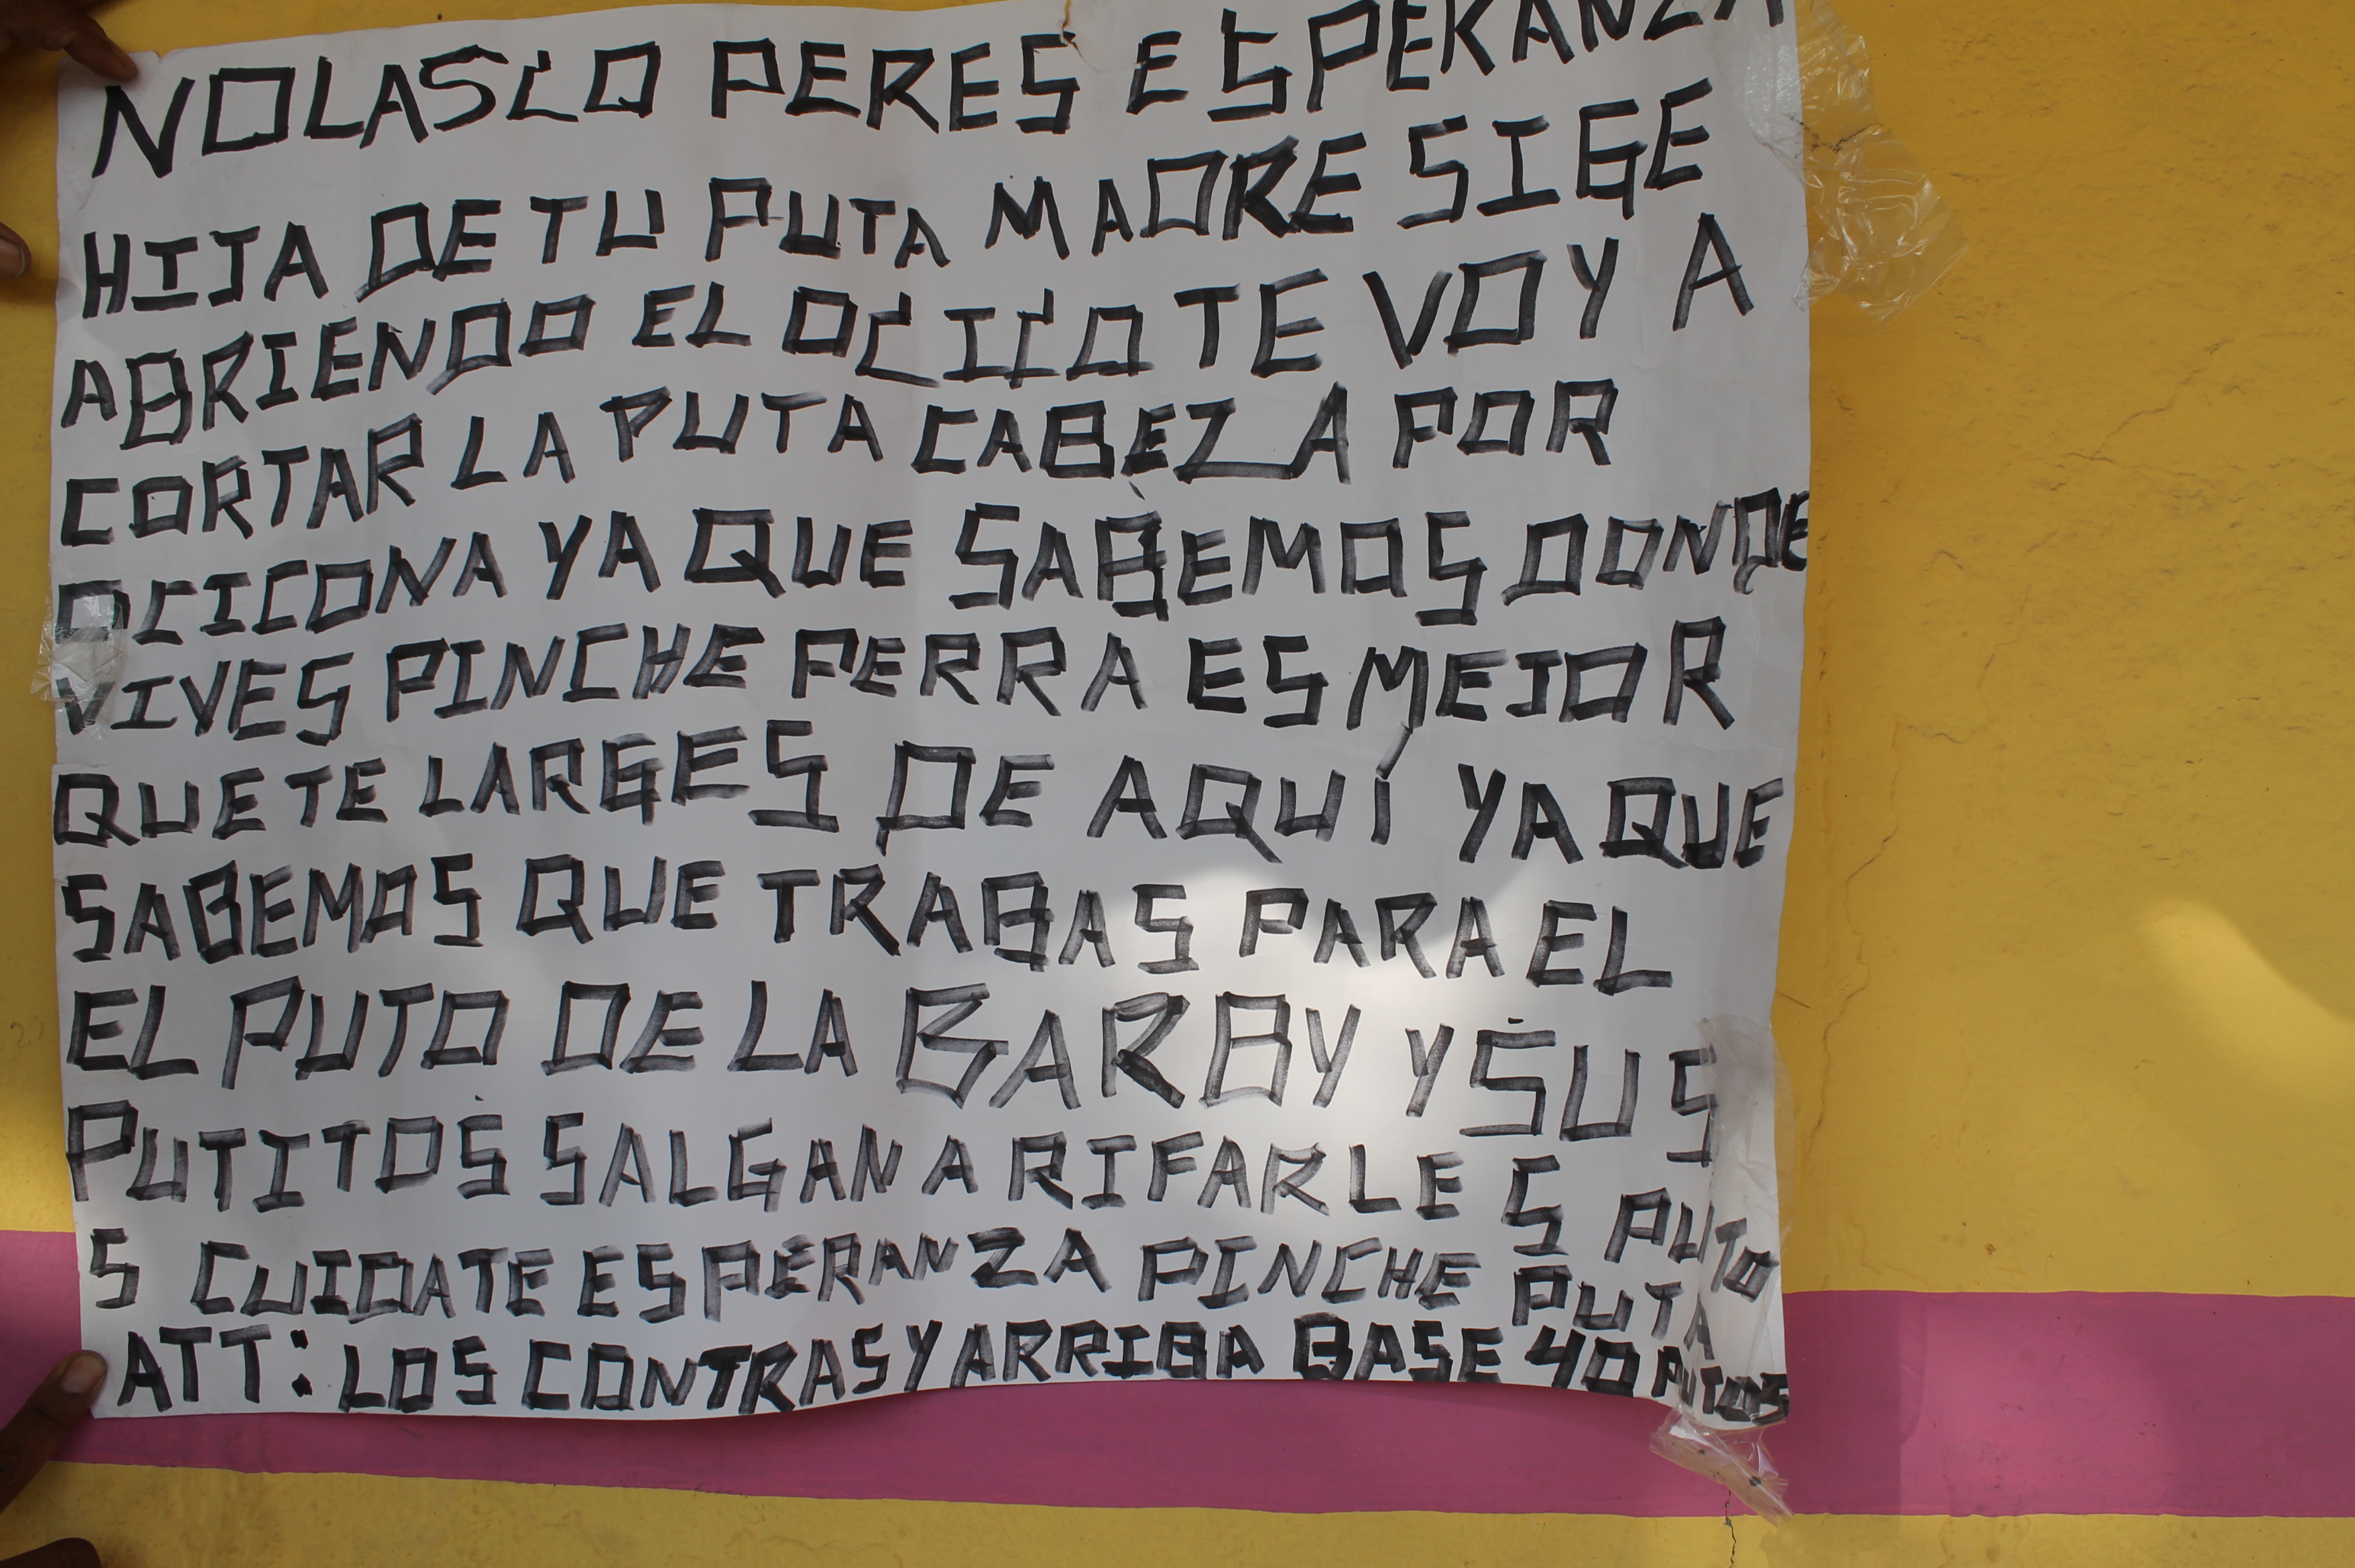 NOLASCO PERES ESPERANZA
HIJA DE TU PUTA MADRE SIGE
ABRIENDO EL OCICO TE VOY A
CORTAR LA PUTA CABEZA POR
OCICONA YA QUE SABEMOS DONDE
VIVES PINCHE PERRA ES MEJOR
QUE TE LARGES DE AQUÍ YA QUE
SABEMOS QUE TRABAS PARA EL
EL PUTO DE LA BARBY Y SUS
PUTITOS SALGAN A RIFARLE S PUTO
S CUIDATE ESPERANZA PINCHE PUTA
ATT: LOS CONTRAS Y ARRIBA BASE 40 PUTOS